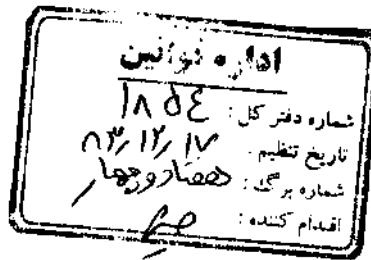 اداره قوانین
شماره دفتر کل: ١٨٥٤
تاریخ تنظیم: ٨٣/١٢/١٧
شماره برگ: هفتاد و چهار
اقدام کننده: